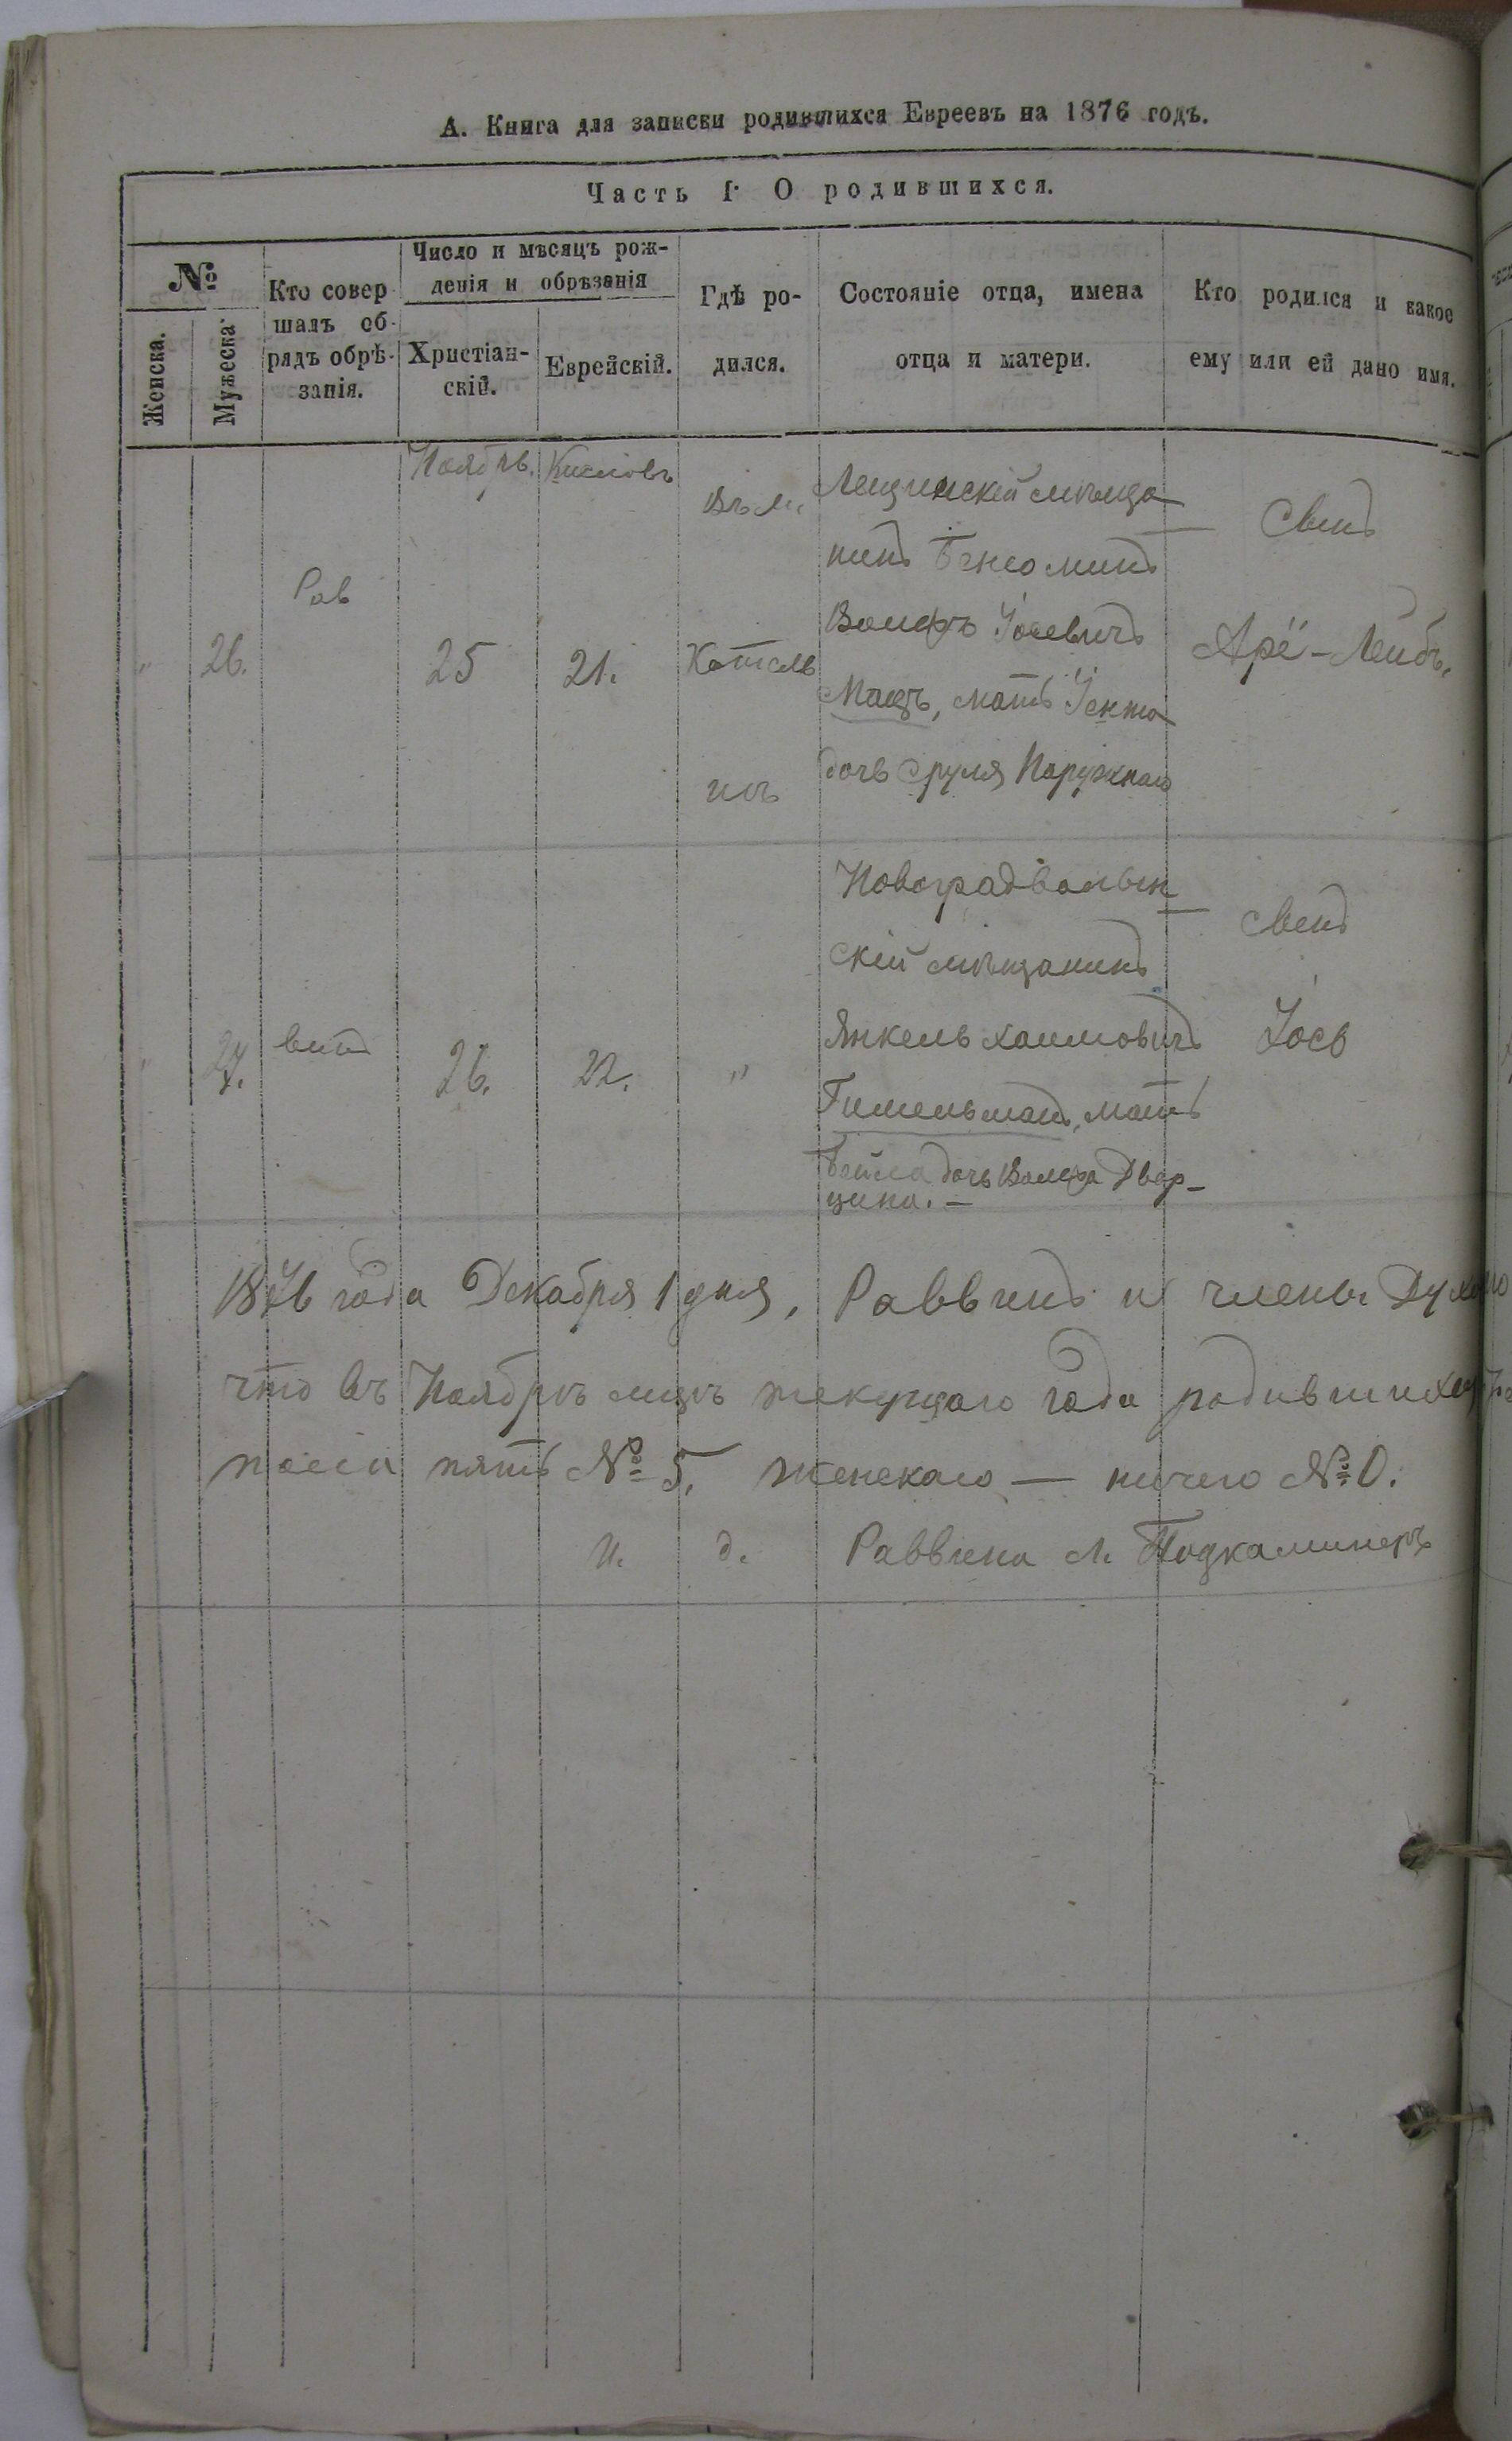 А. Книга для записки родившихся Евреевъ на 1876 годъ.
Часть I. О родившихся.
№
Женска.
Мужеска.
Кто совер
шалъ об-
рядъ обрѣ-
занія.
Число и мѣсяцъ рож-
денія и обрѣзанія
Христіан-
скій.
Еврейскій.
Гдѣ ро-
дился.
Состояніе отца, имена
отца и матери.
Кто родился и какое
ему или ей дано имя.
Ноябрь. Кислевъ
„ 26.
Рав
25
21.
Въ м.
Котель
нѣ
мѣща
нинъ Бенюминъ
Вольфъ Іосевичъ
мать
дочь Сруля
Сынъ
Арё-Лейбъ.
„ 27.
винъ
26.
22.
"
Новоградволын
скій мѣщанинъ
Янкель Хаимовичъ
Гимельманъ, мать
Бейла дочь Вольфа Двор-
цина. —
Сынъ
Іось
1876 года Декабря 1 дня, Раввинъ и члены
что въ Ноябрѣ мцѣ текущаго года родившихся
пять № 5, женскаго — ничего № 0.
И. д. Раввина М. Подкаминеръ